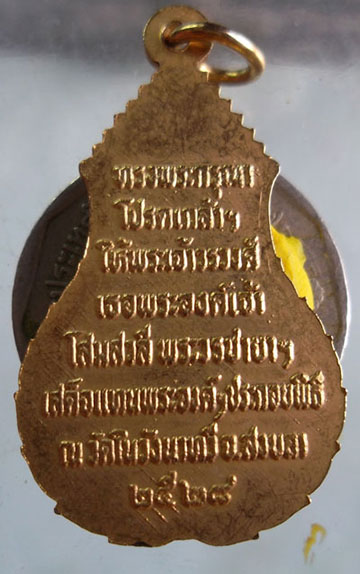 ทรงพระกรุณา
โปรดเกล้าฯ
ให้พระเจ้าวรวงศ์
เธอพระองค์เจ้า
โสมสวลี พระวรชายาฯ
เสด็จแทนพระองค์ฯประกอบพิธี
ณ วัดโนวังนาทวี จ.สงขลา
๒๕๒๘